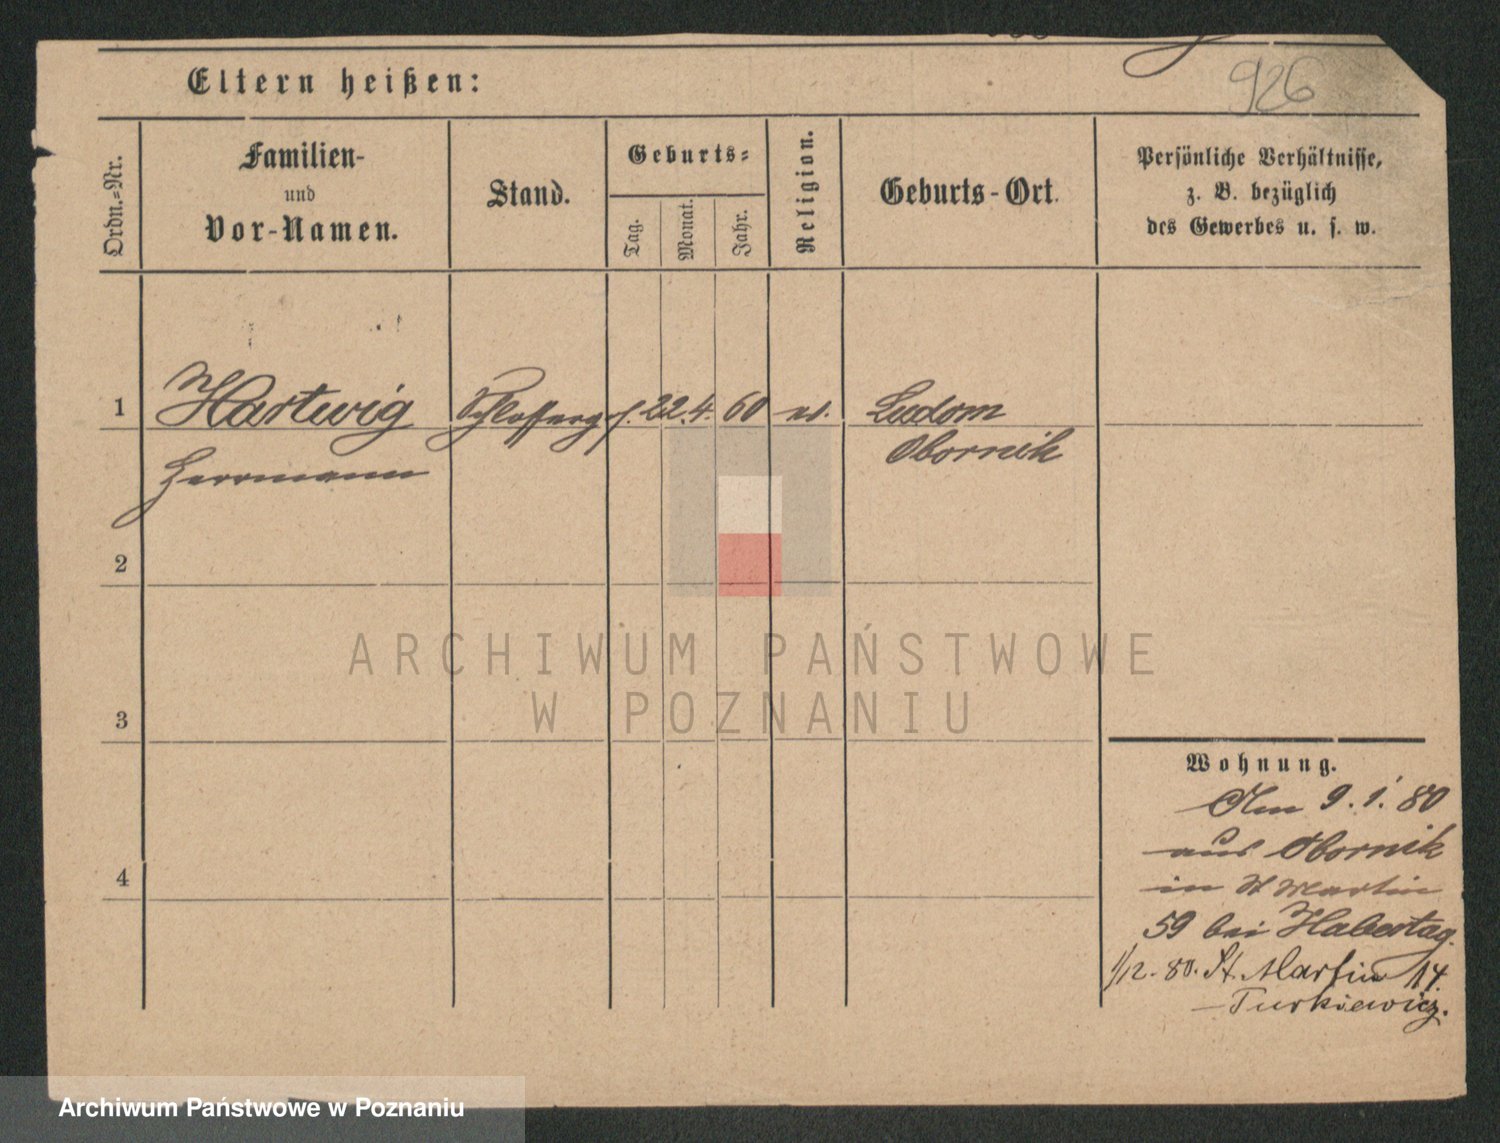 926
Eltern heißen:
Ordn.-Nr.
Familien-
und
Vor-Namen.
Stand.
Geburts-
Tag.
Monat.
Jahr.
Religion.
Geburts-Ort.
Persönliche Verhältnisse,
z. B. bezüglich
des Gewerbes u. s. w.
1 Hartwig Schlosserges. 22. 4. 60 ev. Ludom
Herrmann Obornik
2
3
4
ARCHIWUM PAŃSTWOWE
W POZNANIU
Wohnung.
Am 9. 1. 80
aus Obornik
in St Martin
59 bei Habertag.
1/12. 80. St. Martin 14.
Turkiewicz.
Archiwum Państwowe w Poznaniu